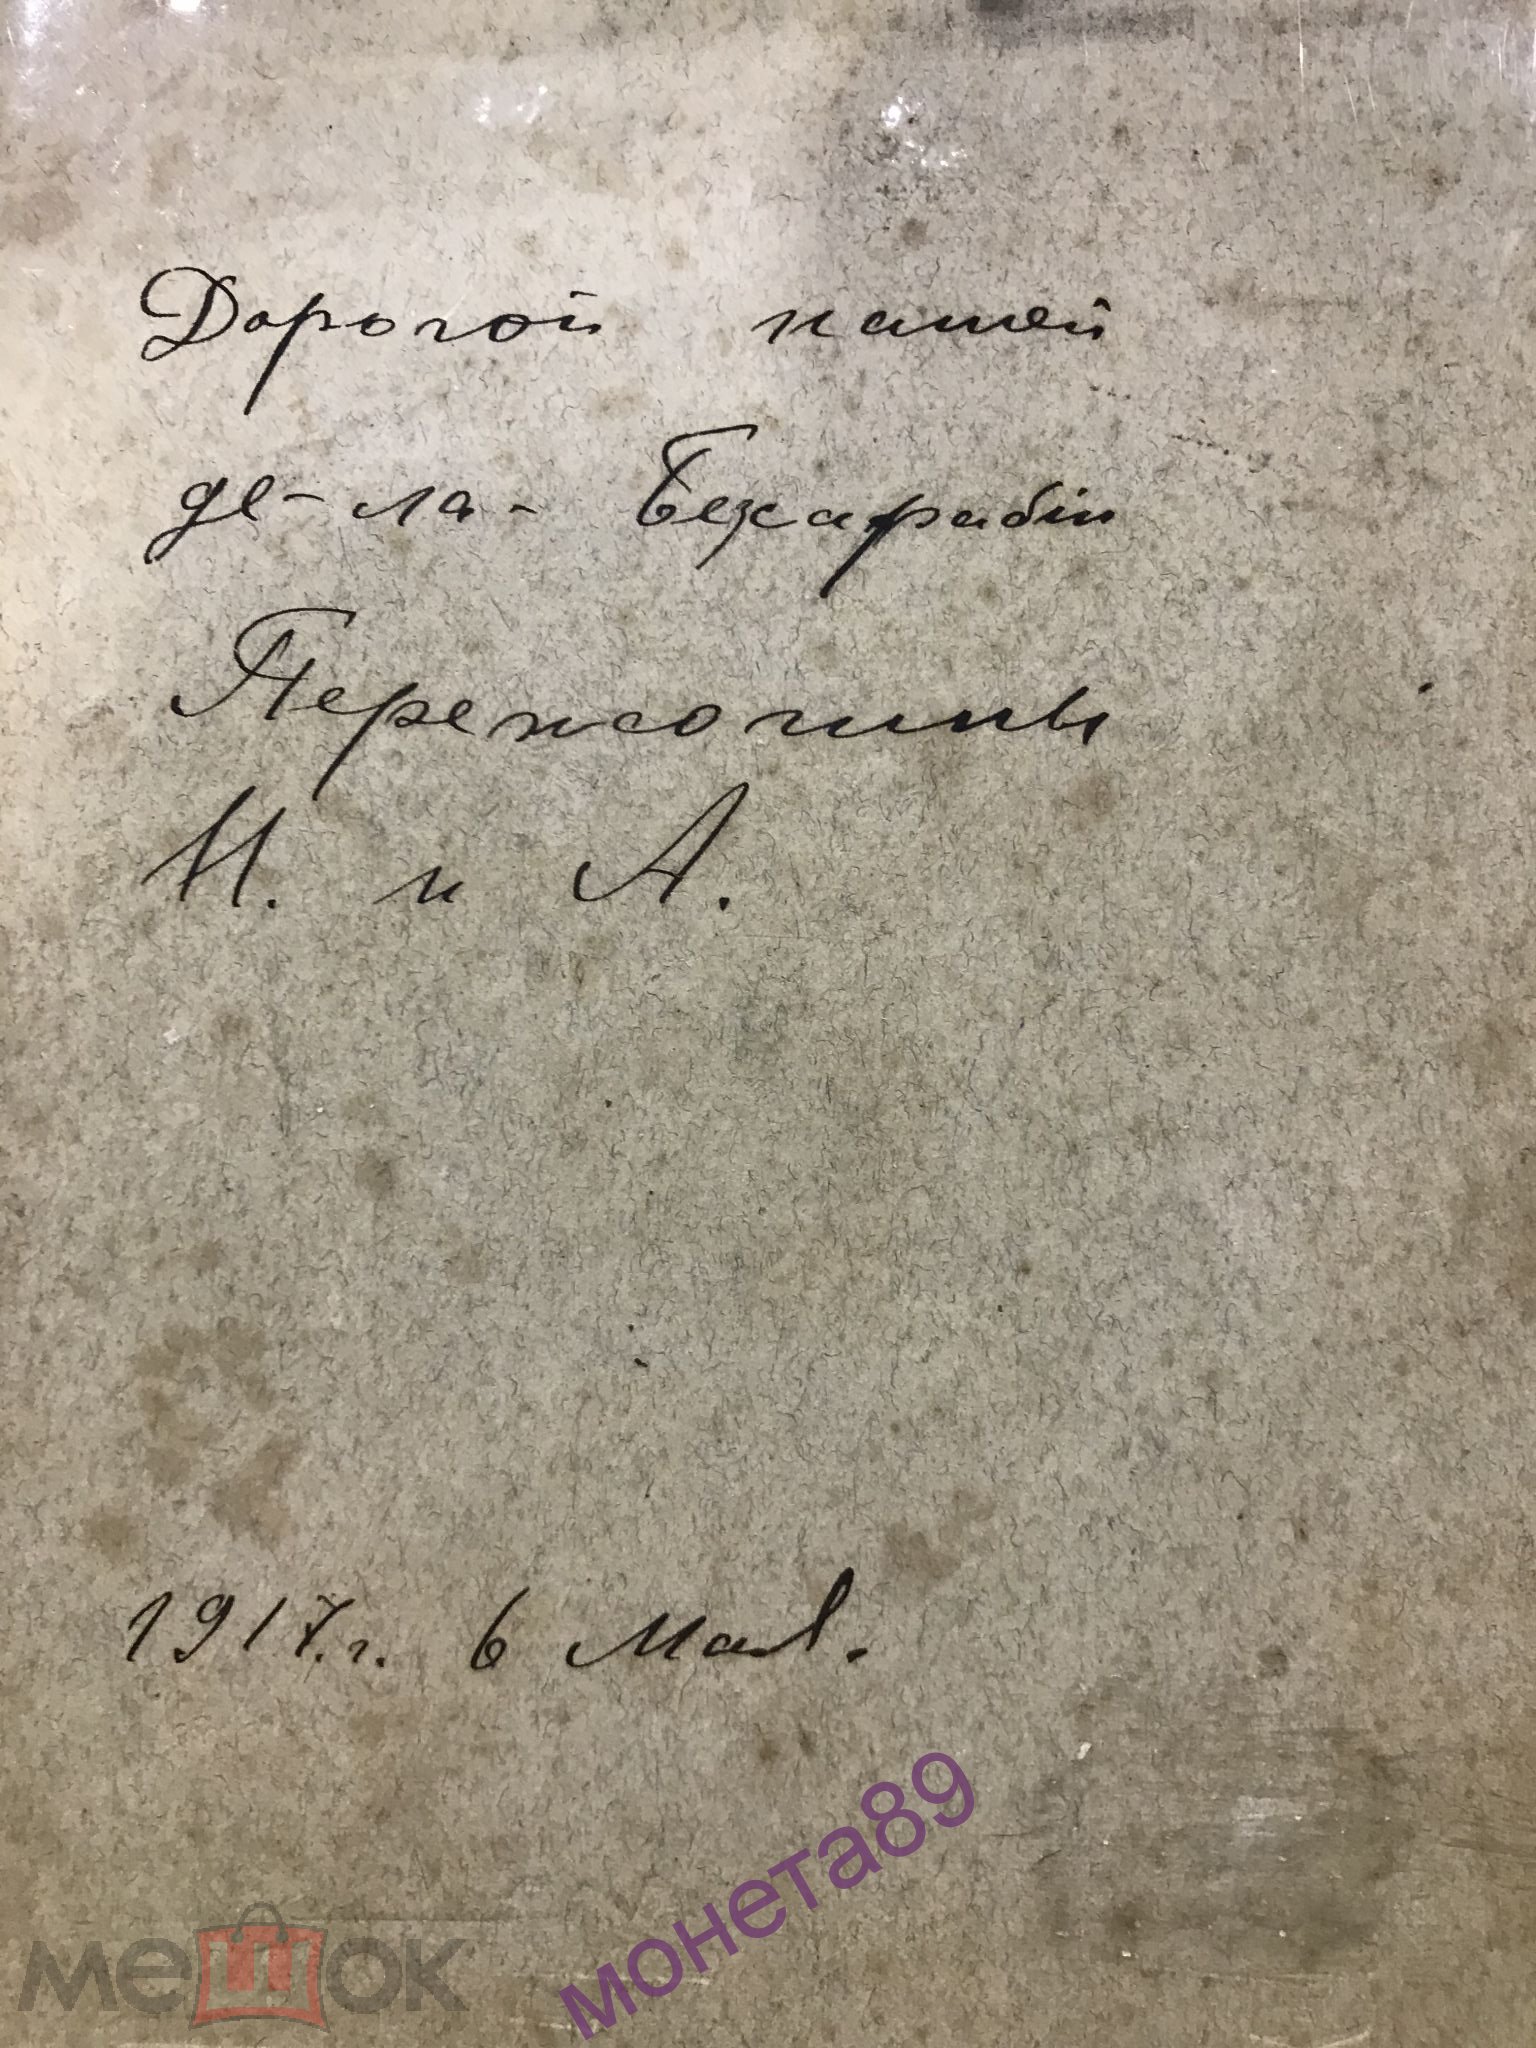 Дорогой нашей
де-ла-Безсарабіи
Пережогины
Н. и А.
1917.г. 6 Мая.
монета89
мешок